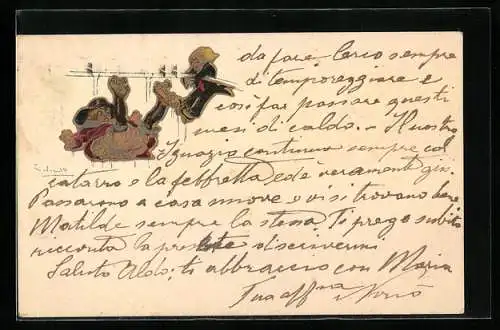 da fare. Cerco sempre
di temporeggiare e
così far passare questi
mesi di caldo. - Il nostro
Ignazio continua sempre col
catarro e la febbretta ed è veramente giù.
Passarono a casa nuova e vi si trovano bene
Matilde sempre la stessa. Ti prego subito
ricevuta la di scrivermi
Saluto Aldo; ti abbraccio con Maria
Tua aff ma